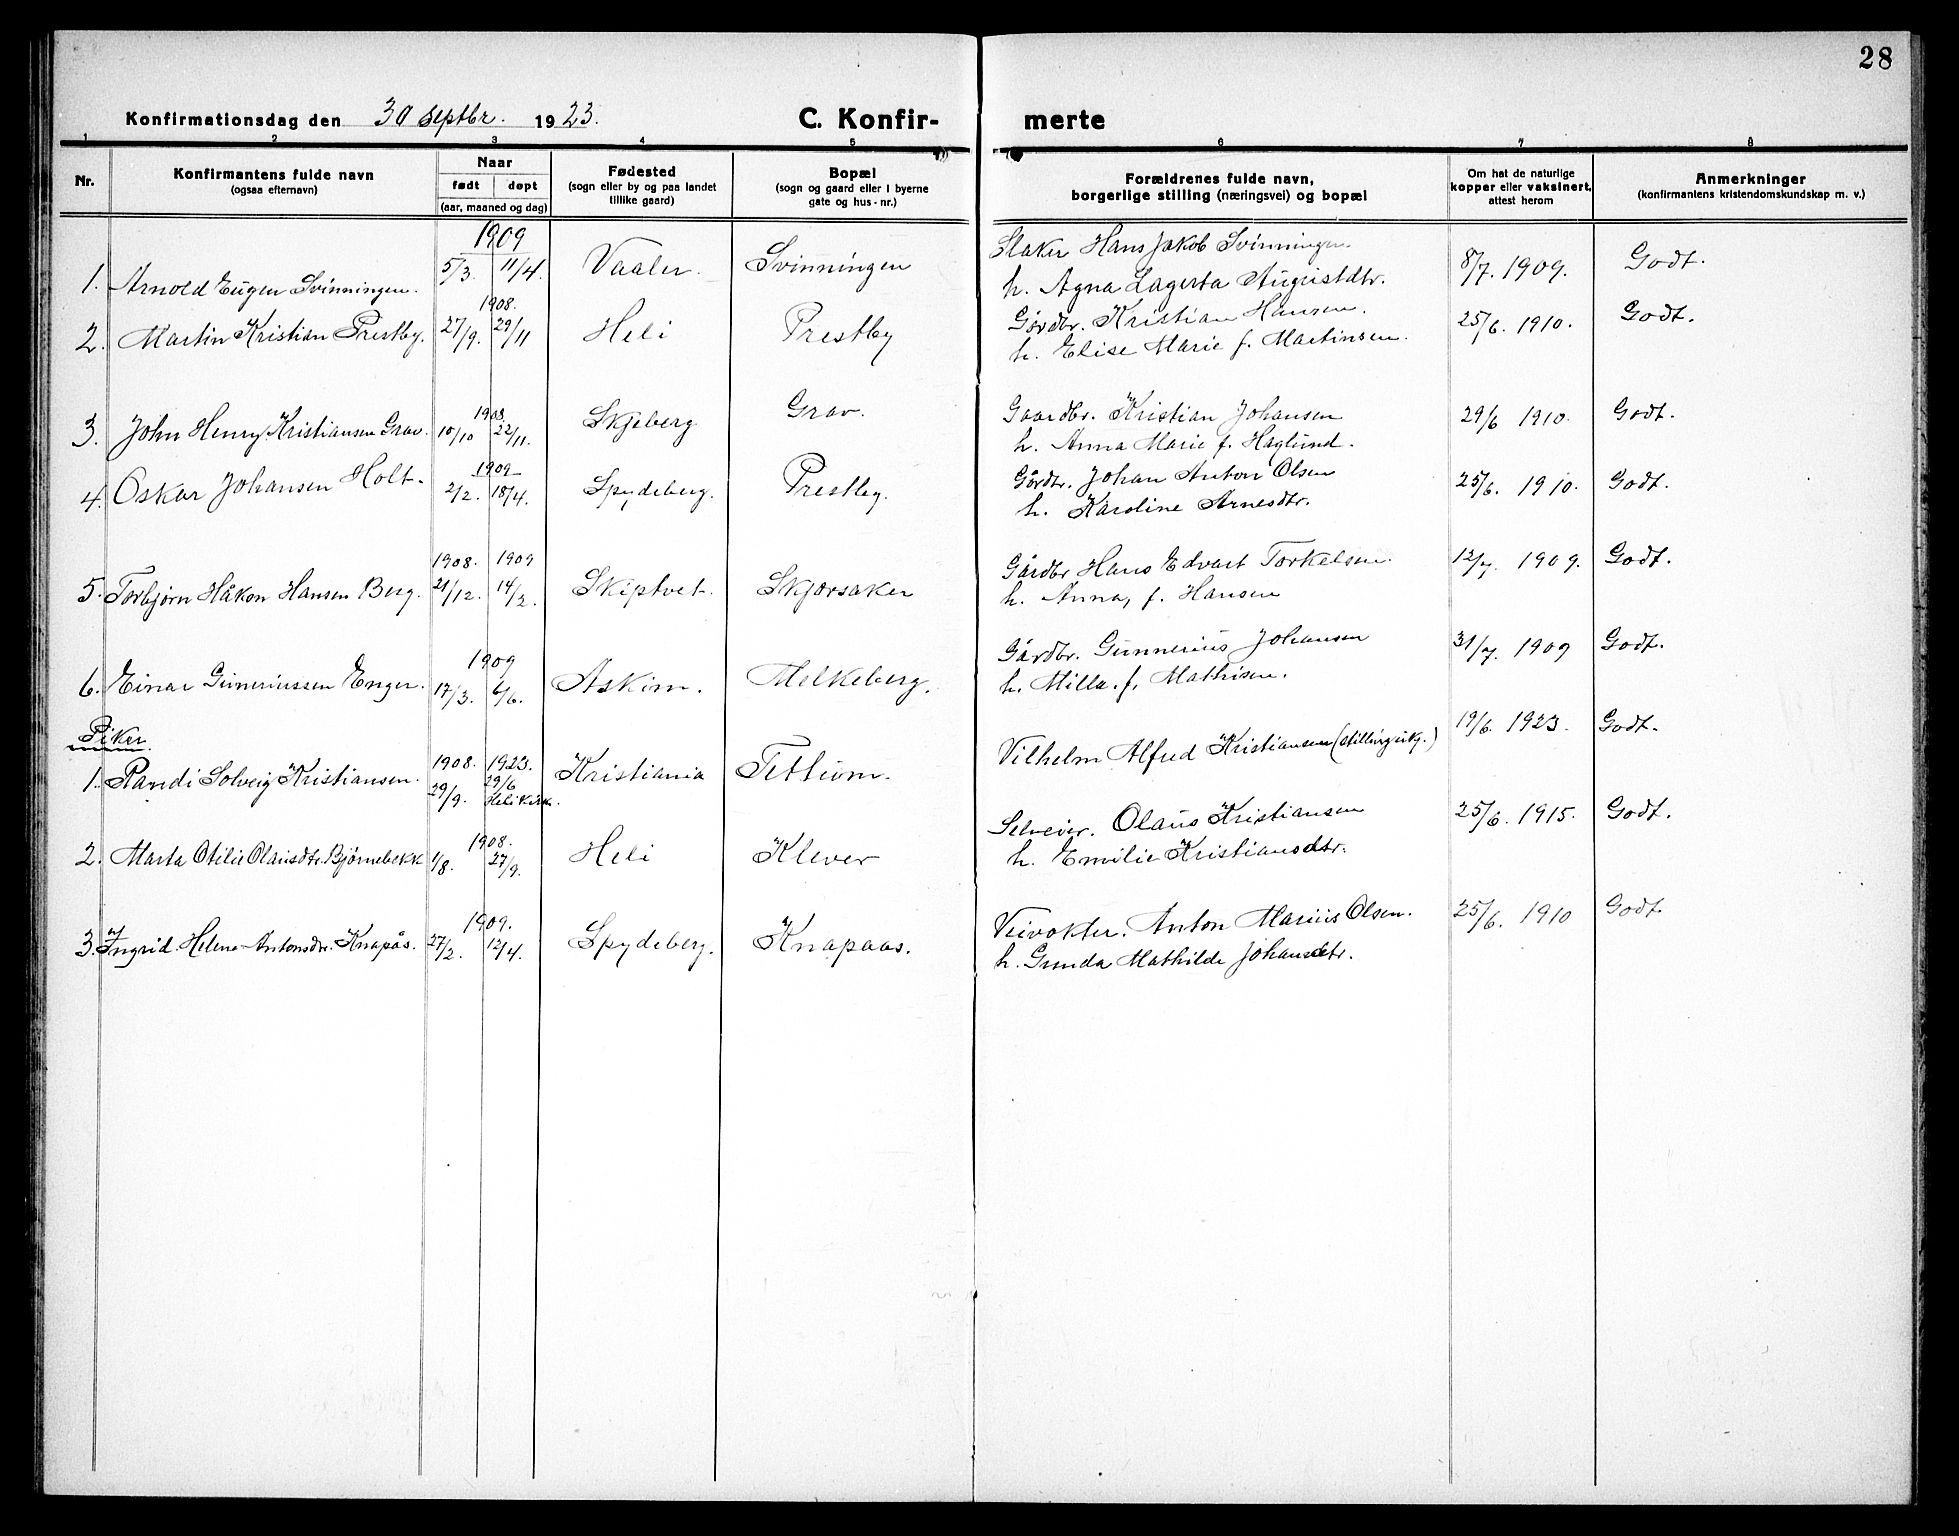 28
Konfirmationsdag den 30 septbr. 1923. C. Konfir- merte
1 2 3 4 5 6 7 8
Nr. Konfirmantens fulde navn (ogsaa efternavn) Naar født døpt (aar, maaned og dag) Fødested (sogn eller by og paa landet tillike gaard) Bopæl (sogn og gaard eller i byerne gate og hus-nr.) Forældrenes fulde navn, borgerlige stilling (næringsvei) og bopæl Om hat de naturlige kopper eller vaksinert, attest herom Anmerkninger (konfirmantens kristendomskundskap m. v.)
1909
1. Arnold Eugen Svinningen. 5/3. 11/4. Vaaler. Svinningen Hans Jakob Svinningen. 8/7. 1909. Godt.
h. Agna Lagerta Augustdtr.
1908.
2. Martin Kristian Prestby. 27/9. 29/11 Heli Prestby Gårdbr. Kristian Hansen. 25/6. 1910. Godt.
h. Elise Marie f. Martinsen.
1908
3. John Henry Kristiansen Grav. 10/10 22/11. Skjeberg Grav. Gaardbr. Kristian Johansen 29/6 1910. Godt.
h. Anna Marie f. Haglund.
1909
4. Oskar Johansen Holt. 2/2. 18/4. Spydeberg. Prestby. Gårdbr. Johan Anton Olsen 25/6. 1910. Godt.
h. Karoline Arnesdtr.
1908. 1909
5. Torbjørn Håkon Hansen Berg. 21/12. 14/2. Skiptvet. Skjorsaker Gårdbr Hans Edvart Torkelsen. 12/7. 1909. Godt.
h. Anna, f. Hansen
1909
6. Einar Guneriussen Enger. 17/3. 6/6. Askim. Melkeberg. Gårdbr. Gunnerius Johansen 31/7. 1909 Godt.
h. Milla. f. Mathisen.
Piker.
1908. 1923.
1. Randi Solveig Kristiansen. 29/9. 29/6 Heli kirk. Kristiania Tettum. Vilhelm Alfred Kristiansen (stilling uk.) 19/6. 1923. Godt.
1908.
2. Marta Otilie Olausdtr. Bjørnebekk 1/8. 27/9. Heli Klever Selveier. Olaus Kristiansen 25/6. 1915. Godt.
h. Emilie Kristiansdtr.
1909.
3. Ingrid Helene Antonsdtr. Knapås. 27/2. 12/4. Spydeberg. Knapaas. Veivokter. Anton Marius Olsen. 25/6. 1910 Godt.
h. Gunda Mathilde Johansdtr.